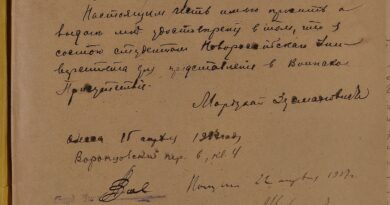 Настоящим честь имею просить о
выдаче мне удостоверения в том, что я
состою студентом Новороссийского Уни-
верситета для представления в Воинское
Присутствие.
Одесса 15 апреля
Воронцовский пер. 6, кв. 4
22 апреля 1917